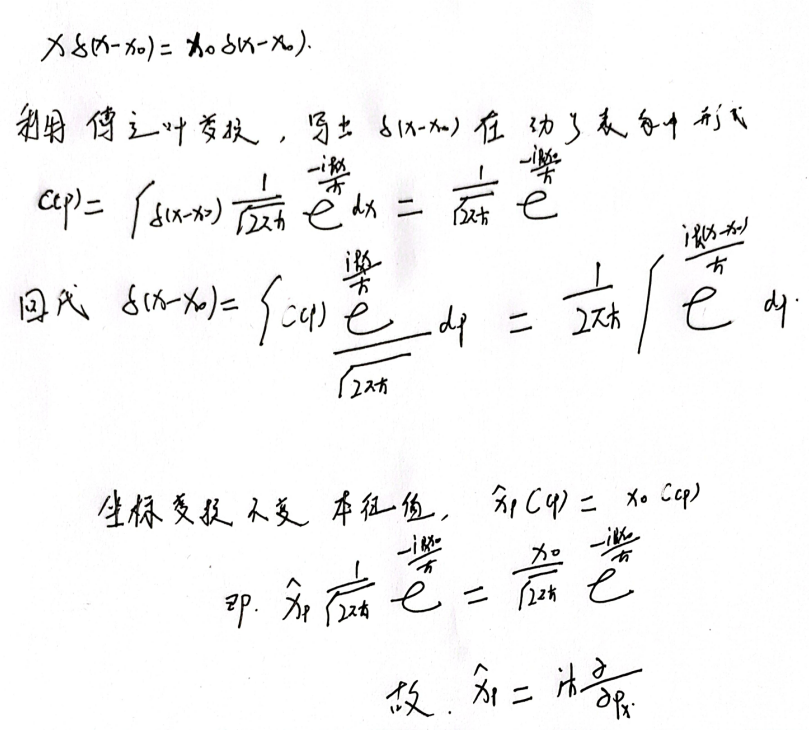 xδ(x-x₀)=x₀δ(x-x₀).
利用傅立叶变换,写出δ(x-x₀)在动量表象中形式
C(p)=∫δ(x-x₀) 1/√(2πħ) e^(-ipx/ħ) dx = 1/√(2πħ) e^(-ipx₀/ħ)
回代 δ(x-x₀)=∫C(p) e^(ipx/ħ)/√(2πħ) dp = 1/(2πħ) ∫ e^(ip(x-x₀)/ħ) dp.
坐标变换不变本征值, x̂ₚC(p)= x₀C(p)
即. x̂ₚ 1/√(2πħ) e^(-ipx₀/ħ) = x₀/√(2πħ) e^(-ipx₀/ħ)
故. x̂ₚ = iħ ∂/∂pₓ.